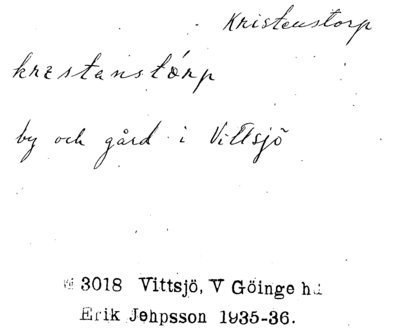 Kristenstorp
krɛstanstórp
by och gård i Vittsjö
3018 Vittsjö, V Göinge hd
Erik Jehpsson 1935-36.